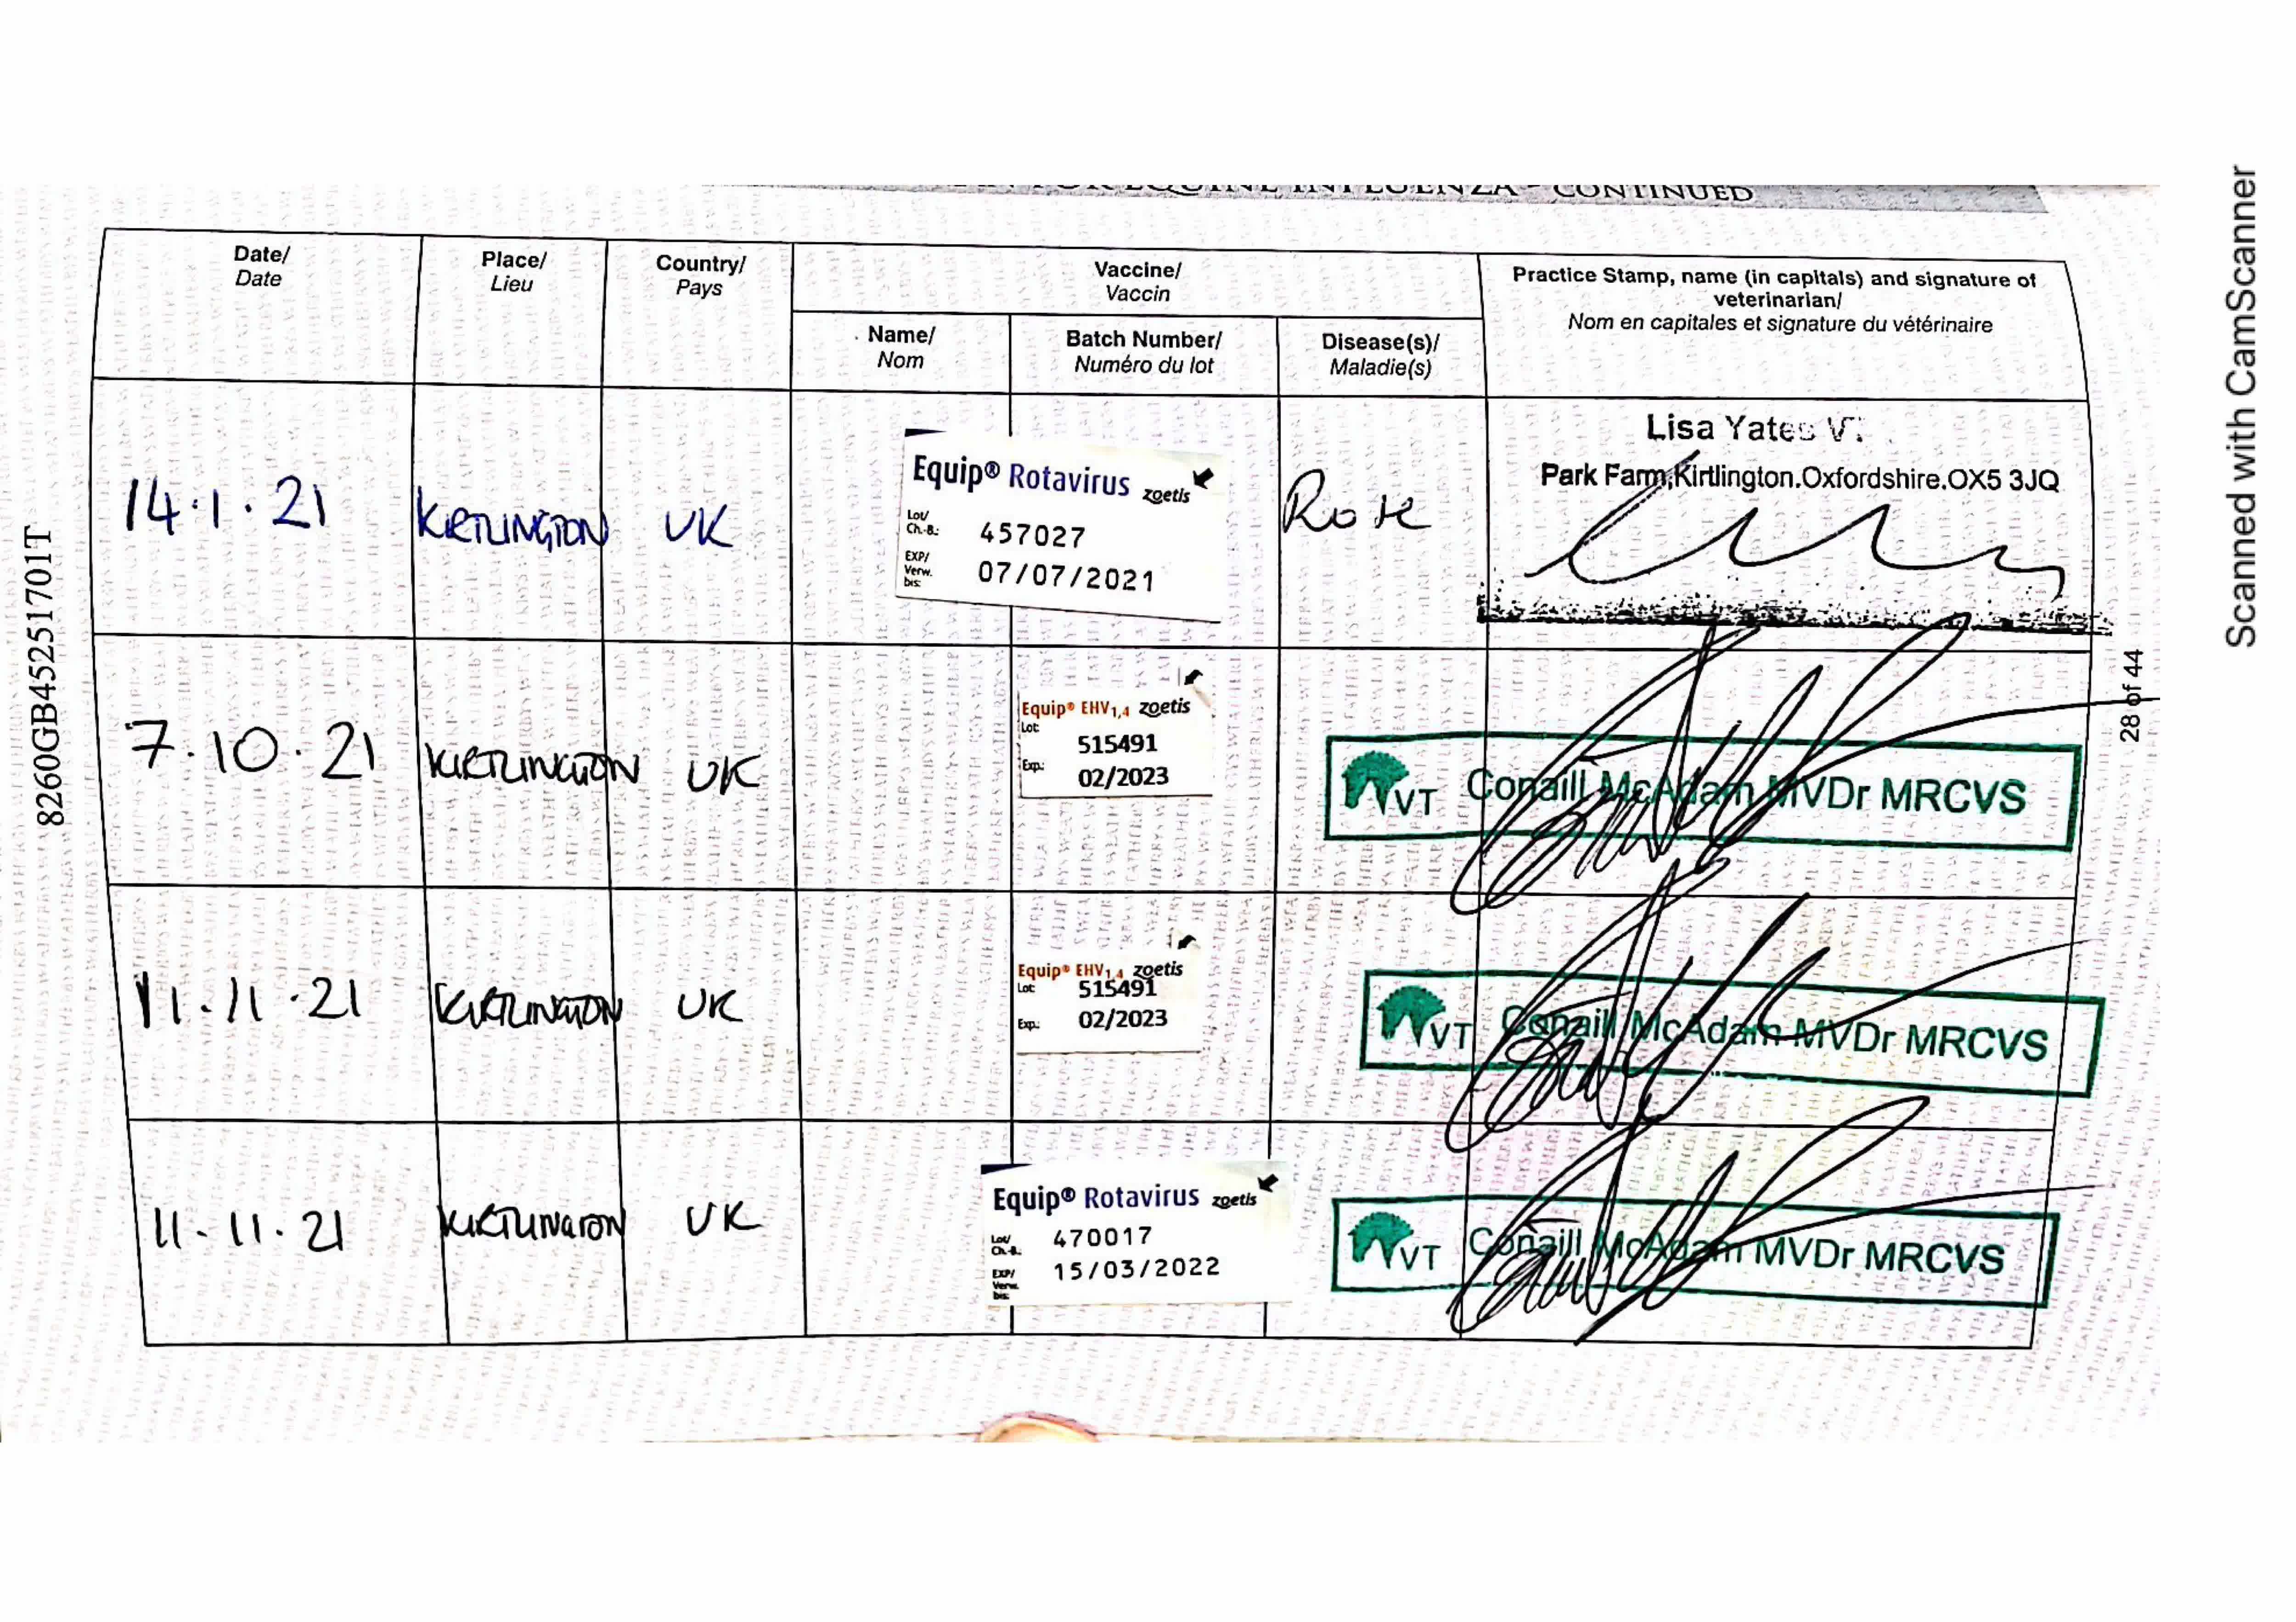 OTHER THAN FOR EQUINE INFLUENZA - CONTINUED
Date/
Date
Place/
Lieu
Country/
Pays
Vaccine/
Vaccin
Name/
Nom
Batch Number/
Numéro du lot
Disease(s)/
Maladie(s)
Practice Stamp, name (in capitals) and signature of
veterinarian/
Nom en capitales et signature du vétérinaire
14.1.21
KIRTLINGTON
UK
Equip® Rotavirus zoetis
Lot/
Ch.-B.: 457027
EXP/
Verw.
bis: 07/07/2021
Lisa Yates
Park Farm,Kirtlington.Oxfordshire.OX5 3JQ
7.10.21
KIRTLINGTON
UK
Equip® EHV1,4 zoetis
Lot:
515491
Exp.:
02/2023
VT Conaill McAdam MVDr MRCVS
11.11.21
KIRTLINGTON
UK
Equip® EHV1,4 zoetis
Lot: 515491
Exp.: 02/2023
VT Conaill McAdam MVDr MRCVS
11.11.21
KIRTLINGTON
UK
Equip® Rotavirus zoetis
Lot/
Ch.-B.: 470017
EXP/
Verw.
bis: 15/03/2022
VT Conaill McAdam MVDr MRCVS
8260GB452251701T
28 of 44
Scanned with CamScanner